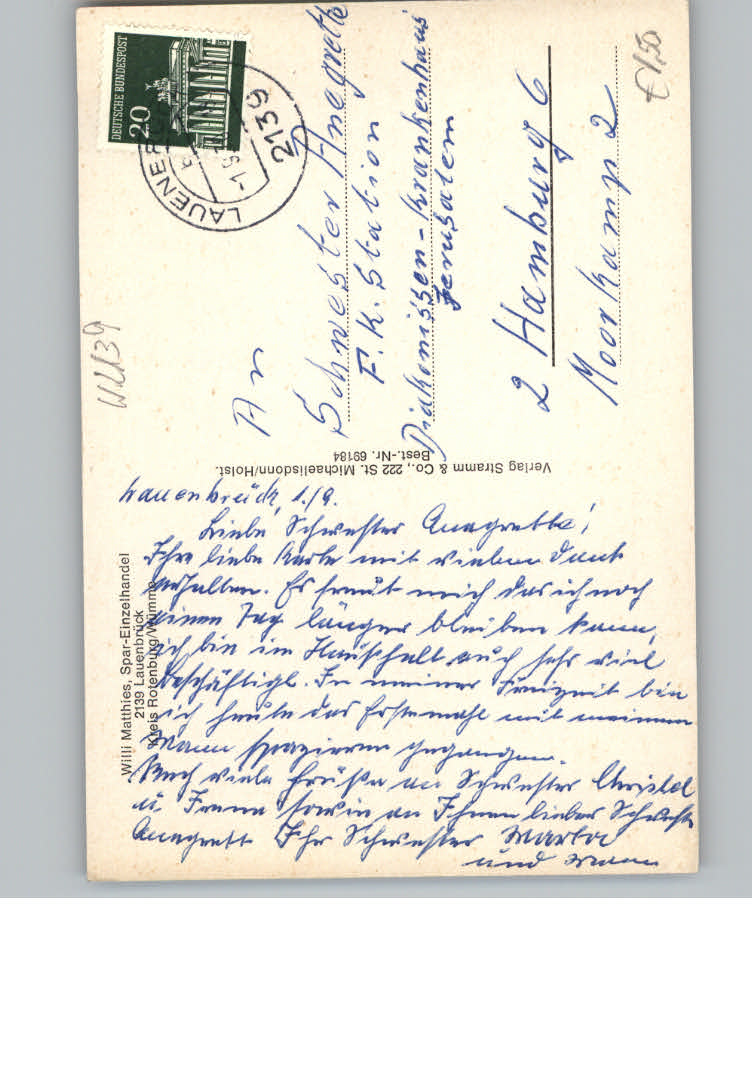 Lauenbrück, 1./9.
Liebe Schwester Annegrette!
Ihre liebe Karte mit vielen Dank
erhalten. Es freut mich das ich noch
einen Tag länger bleiben kann,
ich bin im Haushalt auch sehr viel
beschäftigt. In meiner Freizeit bin
ich heute das Erstemahl mit meinem
Mann spazieren gegangen.
Noch viele Grüße an Schwester Christel
u. sowie an Ihnen liebe Schwester
Annegrett Ihr Schwester Marta
und Mann
Willi Matthies, Spar-Einzelhandel
2139 Lauenbrück
Kreis Rotenburg/Wümme
Verlag Stramm & Co., 222 St. Michaelisdonn/Holst.
Best.-Nr. 69184
DEUTSCHE BUNDESPOST
20
2139
An
Schwester Anegrette
F.K. Station
Diakonissen-Krankenhaus
Jerusalem
2 Hamburg 6
Moorkamp 2
€ 1,50
WU39